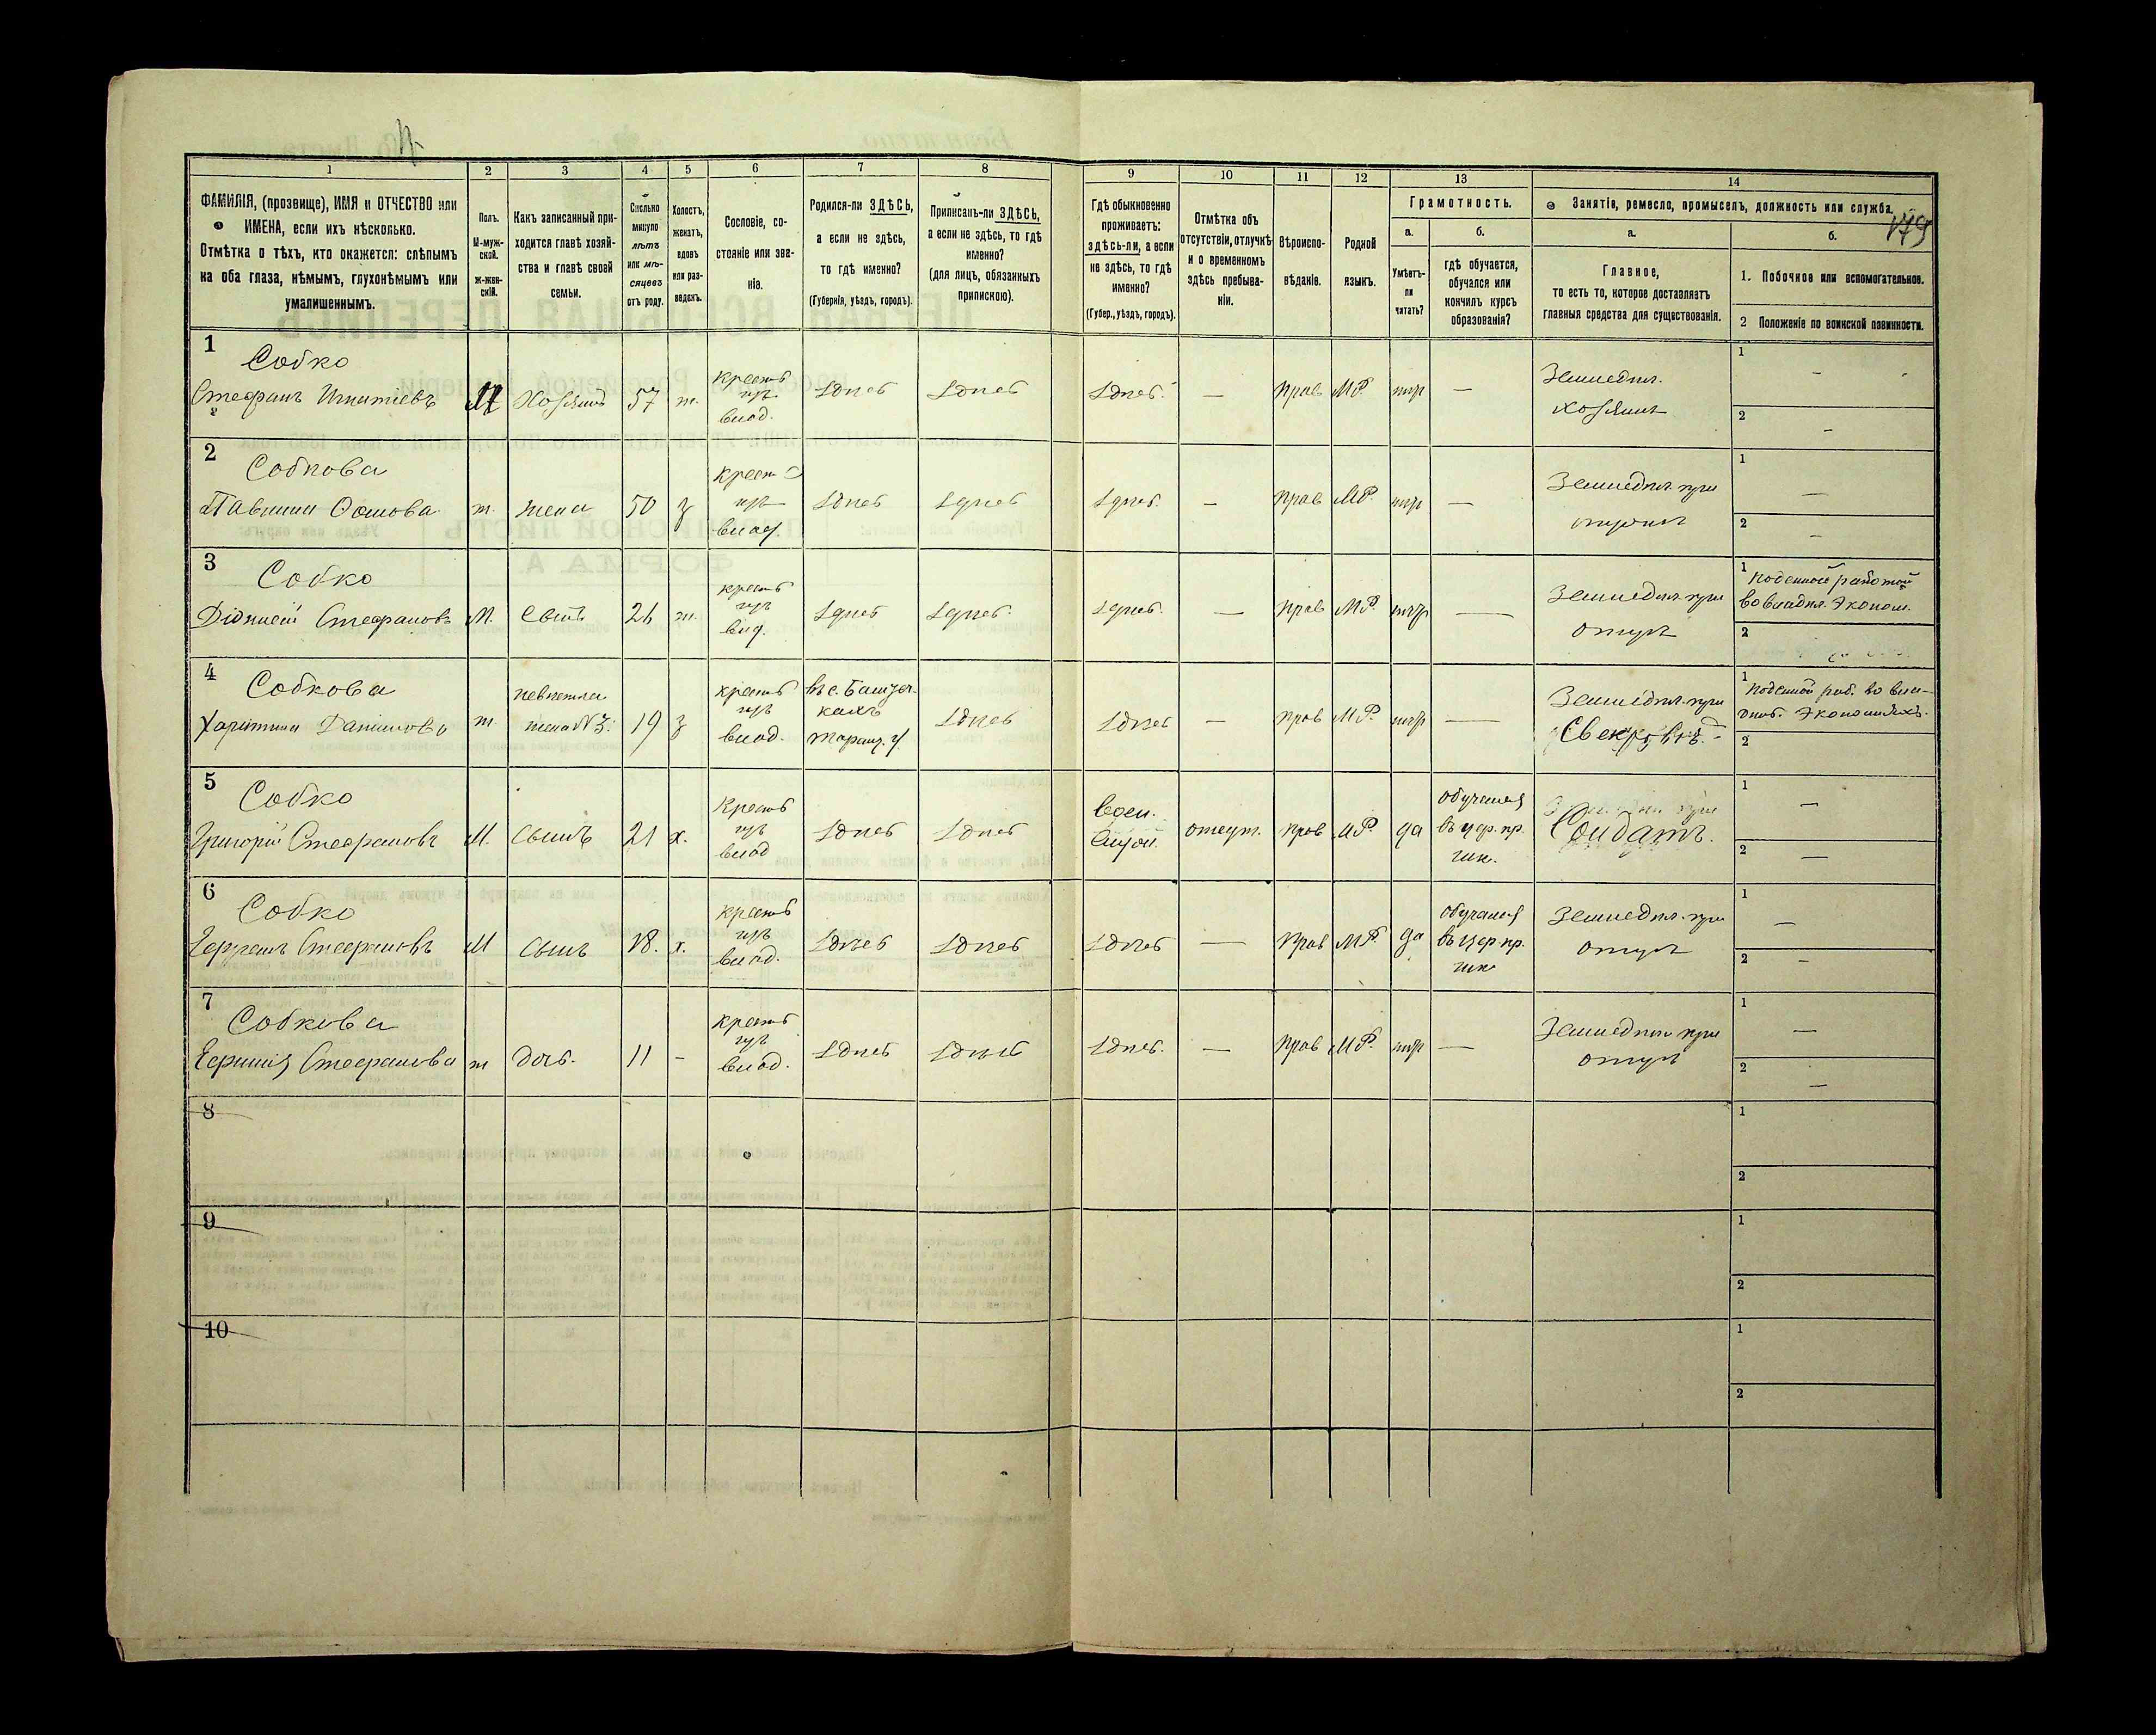 179
1
2
3
4
5
6
7
8
9
10
11
12
13
14
ФАМИЛІЯ, (прозвище), ИМЯ и ОТЧЕСТВО или
ИМЕНА, если ихъ нѣсколько.
Отмѣтка о тѣхъ, кто окажется: слѣпымъ
на оба глаза, нѣмымъ, глухонѣмымъ или
умалишеннымъ.
Полъ.
М-муж-
ской.
ж-жен-
скій.
Какъ записанный при-
ходится главѣ хозяй-
ства и главѣ своей
семьи.
Сколько
минуло
лѣтъ
или мѣ-
сяцевъ
отъ роду.
Холостъ,
женатъ,
вдовъ
или раз-
веденъ.
Сословіе, со-
стояніе или зва-
ніе.
Родился-ли ЗДѢСЬ,
а если не здѣсь,
то гдѣ именно?
(Губернія, уѣздъ, городъ).
Приписанъ-ли ЗДѢСЬ,
а если не здѣсь, то гдѣ
именно?
(для лицъ, обязанныхъ
припискою).
Гдѣ обыкновенно
проживаетъ:
здѣсь-ли, а если
не здѣсь, то гдѣ
именно?
(Губер., уѣздъ, городъ).
Отмѣтка объ
отсутствіи, отлучкѣ
и о временномъ
здѣсь пребыва-
ніи.
Вѣроиспо-
вѣданіе.
Родной
языкъ.
Грамотность.
а.
Умѣетъ-
ли
читать?
б.
гдѣ обучается,
обучался или
кончилъ курсъ
образованія?
Занятіе, ремесло, промыселъ, должность или служба.
а.
Главное,
то есть то, которое доставляетъ
главныя средства для существованія.
б.
1. Побочное или вспомогательное.
2 Положеніе по воинской повинности.
1
Собко
Стефанъ Игнатіевъ
М
Хозяинъ
57
ж.
крестъ
изъ
влад.
Здѣсь
Здѣсь
Здѣсь
—
прав
МР.
нгр
—
Земледѣл.
хозяинъ
1 —
2 —
2
Собкова
ж.
жена
50
з
крест
изъ
влад.
Здѣсь
Здѣсь
Здѣсь
—
прав
МР.
нгр
—
Земледѣл. при
1 —
2 —
3
Собко
Стефановъ
М.
Сынъ
26
ж.
крестъ
изъ
влад.
Здѣсь
Здѣсь
Здѣсь
—
прав
МР.
нгр
—
Земледѣл. при
отцѣ
1 Поденной работой
во владѣл. Эконом.
2
4
Собкова
Даниловъ
ж.
невѣстка
жена №3.
19
з
крестъ
изъ
влад.
въ с.
Таращ. у.
Здѣсь
Здѣсь
—
прав
МР.
нгр
—
Земледѣл. при
1 Поденной раб. во вла-
дѣльч.
2
5
Собко
Григорій Стефановъ
М.
Сынъ
21
х.
Крестъ
изъ
влад
Здѣсь
Здѣсь
воен.
отсут.
прав
МР.
да
обучался
въ цер. пр.
шк.
Солдатъ.
1 —
2 —
6
Собко
Стефановъ
М
Сынъ
18.
х.
крестъ
изъ
влад.
Здѣсь
Здѣсь
Здѣсь
—
прав
МР.
да
обучался
въ цер. пр.
шк.
Земледѣл. при
отцѣ
1 —
2 —
7
Собкова
Стефанова
ж
дочь.
11
-
крестъ
изъ
влад.
Здѣсь
Здѣсь
Здѣсь.
—
прав
МР.
нгр
—
Земледѣл. при
отцѣ
1 —
2 —
8
1
2
9
1
2
10
1
2